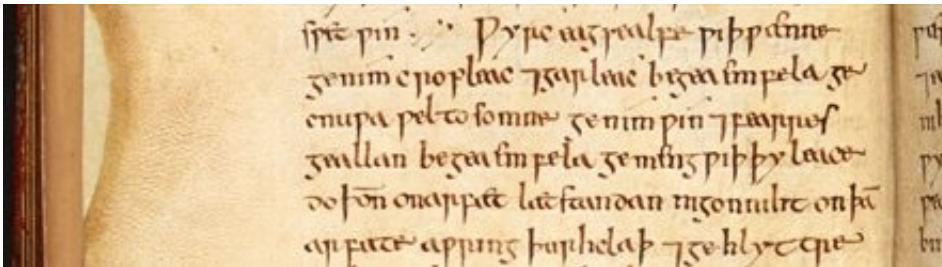 ƿin Ƿyrc eagsealfe ƿiþ ƿænne
genim cropleac ⁊ garleac begea emfela ge
cnuƿa ƿel to somne genim ƿin ⁊ fearres
geallan begea emfela gemeng ƿiþ þy leace
do þoñ on arfæt læt standan nigon niht on þā
arfæte aƿring þurh claþ ⁊ gehlyttre